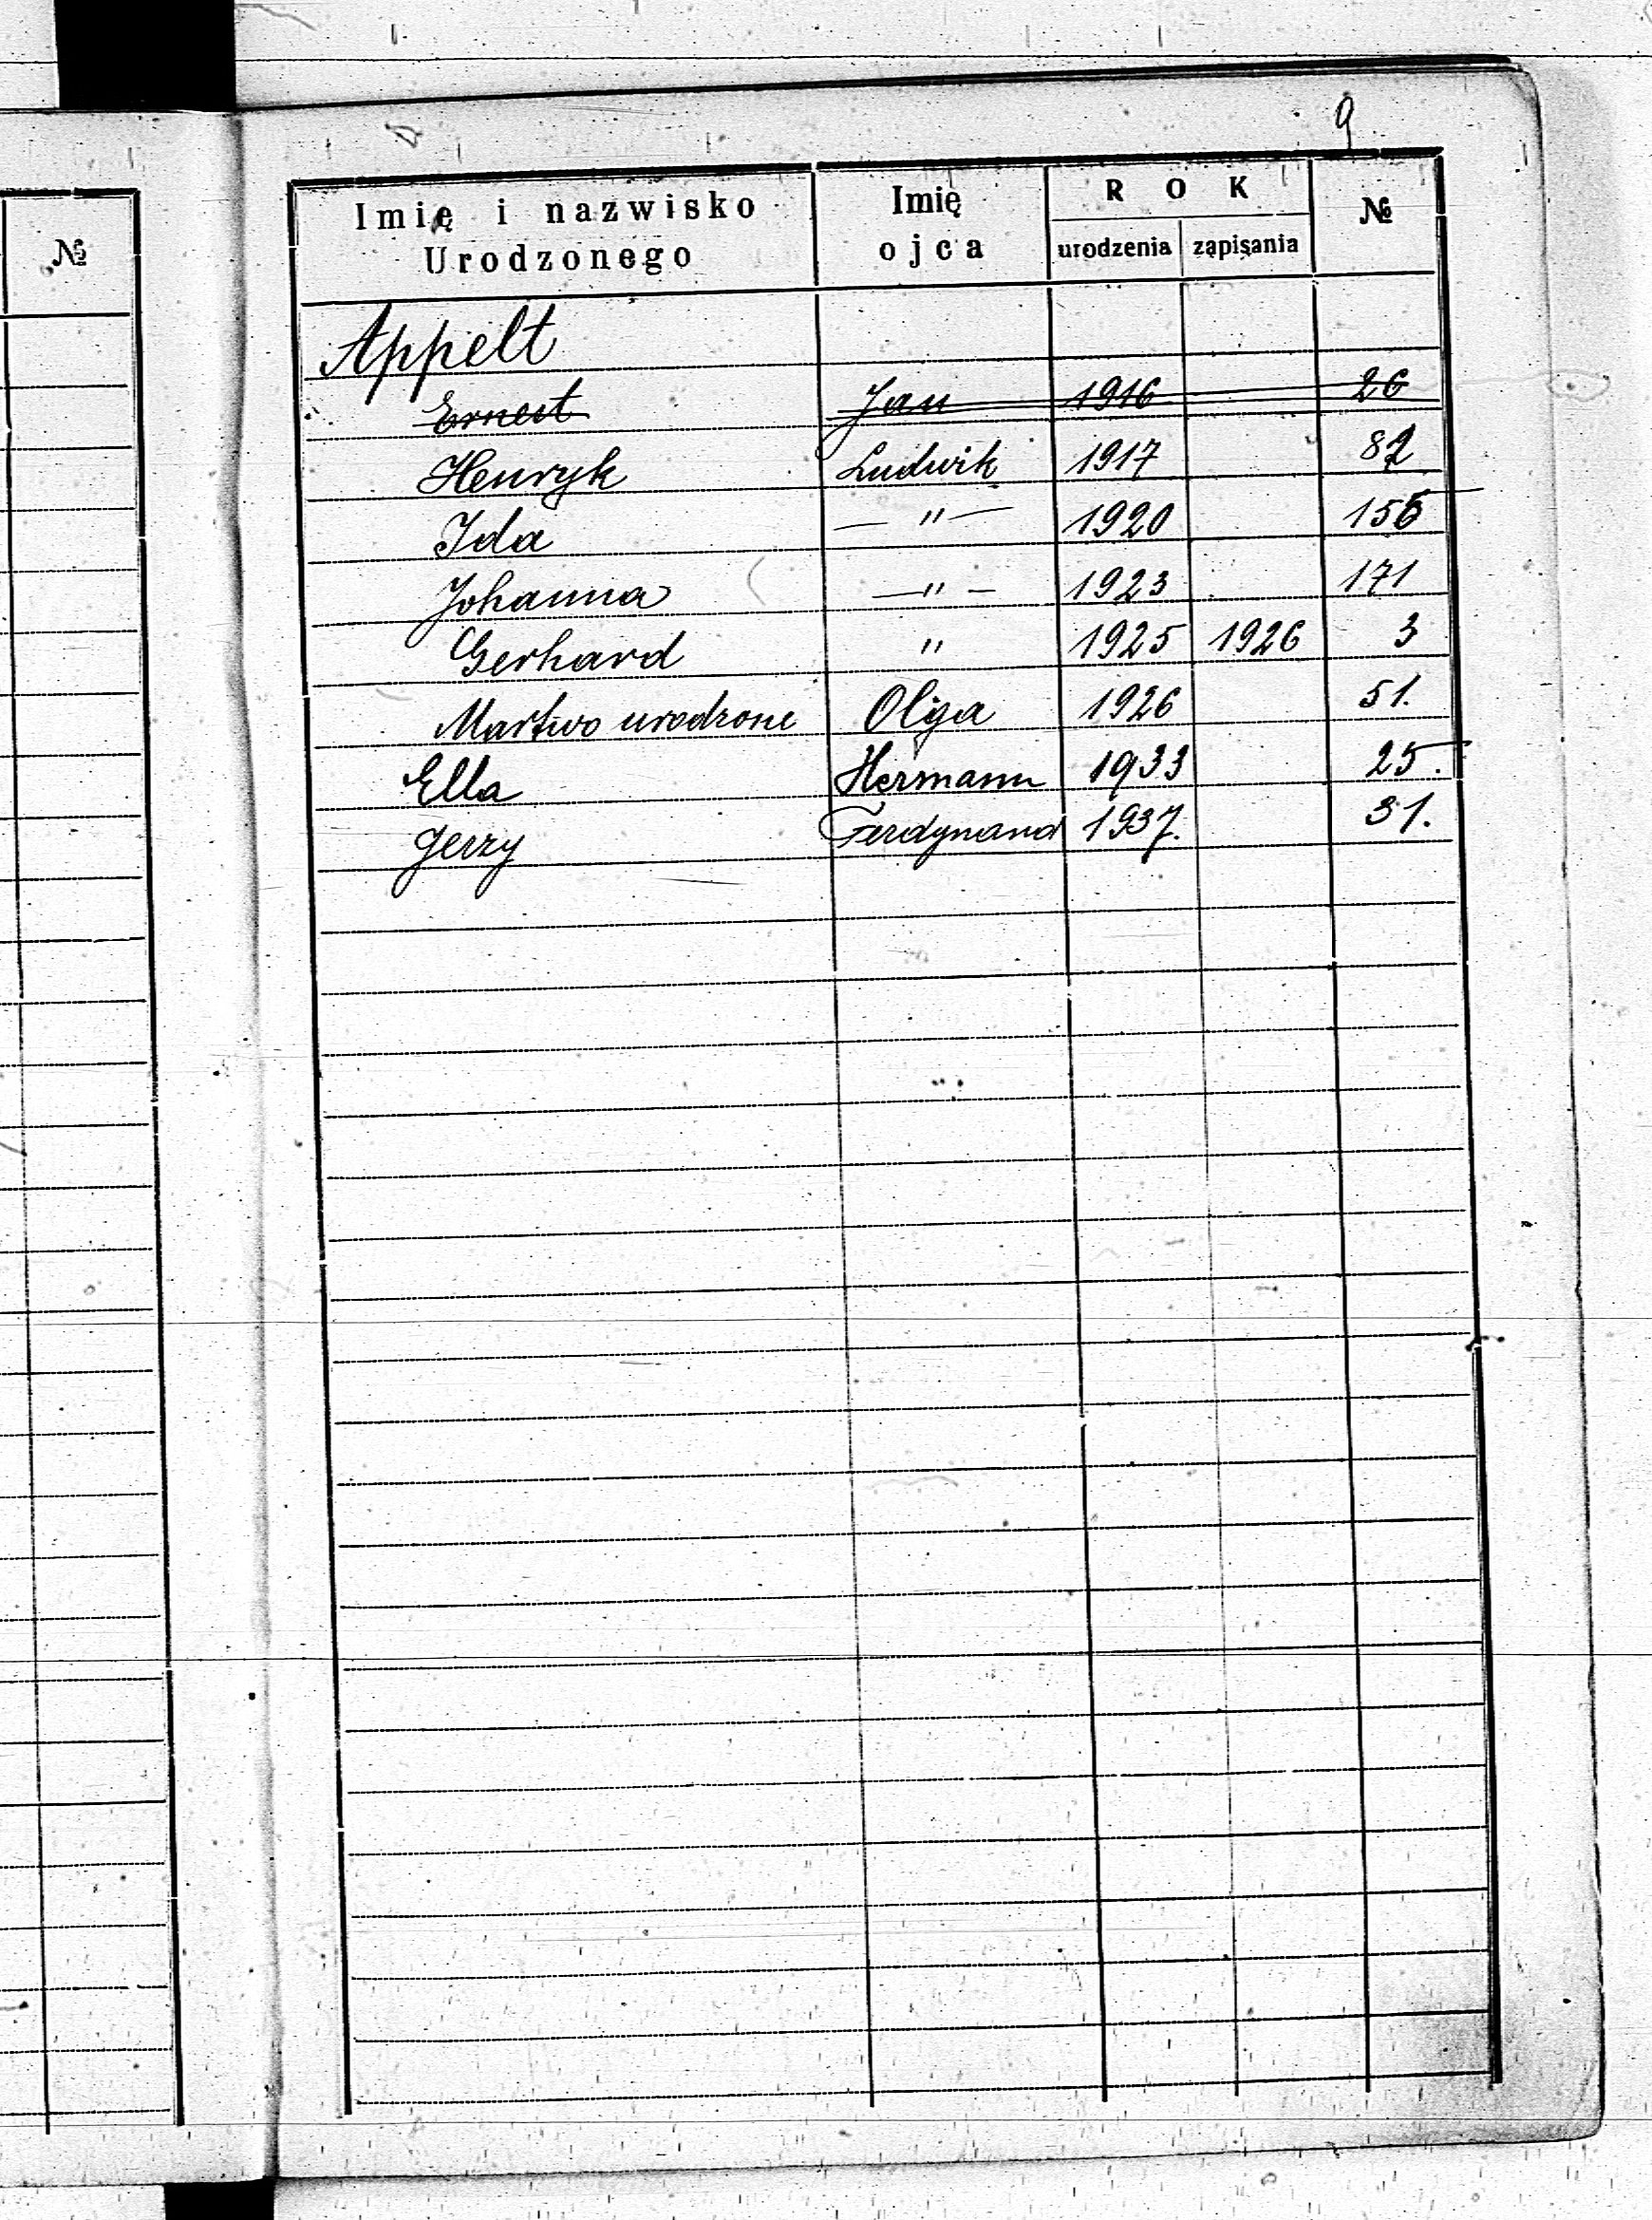 9
№
Imię i nazwisko Urodzonego Imię ojca ROK urodzenia zapisania №
Appelt
Ernest Jan 1916 26
Henryk Ludwik 1917 82
Ida — " — 1920 156
Johanna — " — 1923 171
Gerhard " 1925 1926 3
Martwo urodzone Olga 1926 51.
Ella Hermann 1933 25.
Jerzy Ferdynand 1937. 31.